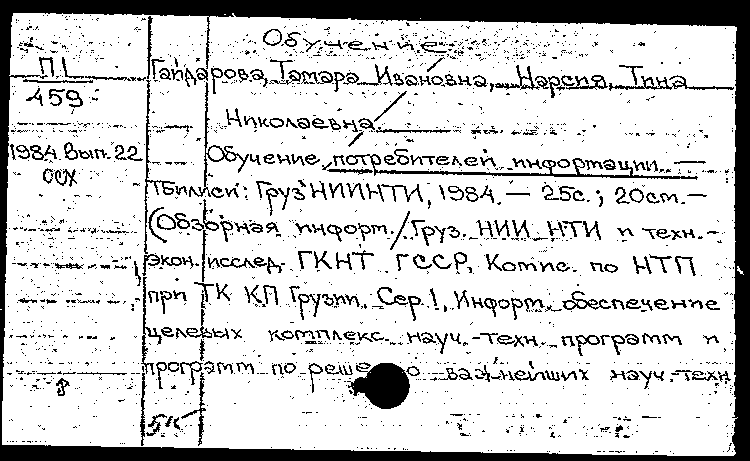 Обучение
П1
459
1984. Вып. 22
ОСХ
Гайдарова, Тамара Ивановна, Нарсия, Тина
Николаевна
Обучение потребителей информации. —
Тбилиси: ГрузНИИНТИ, 1984. — 25с.; 20см. —
(Обзорная информ. / Груз. НИИ НТИ и техн.-
экон. исслед. ГКНТ ГССР, Комис. по НТП
при ТК КП Грузии. Сер. 1, Информ. обеспечение
целевых комплекс. науч.-техн. программ и
программ по реше о важнейших науч.-техн